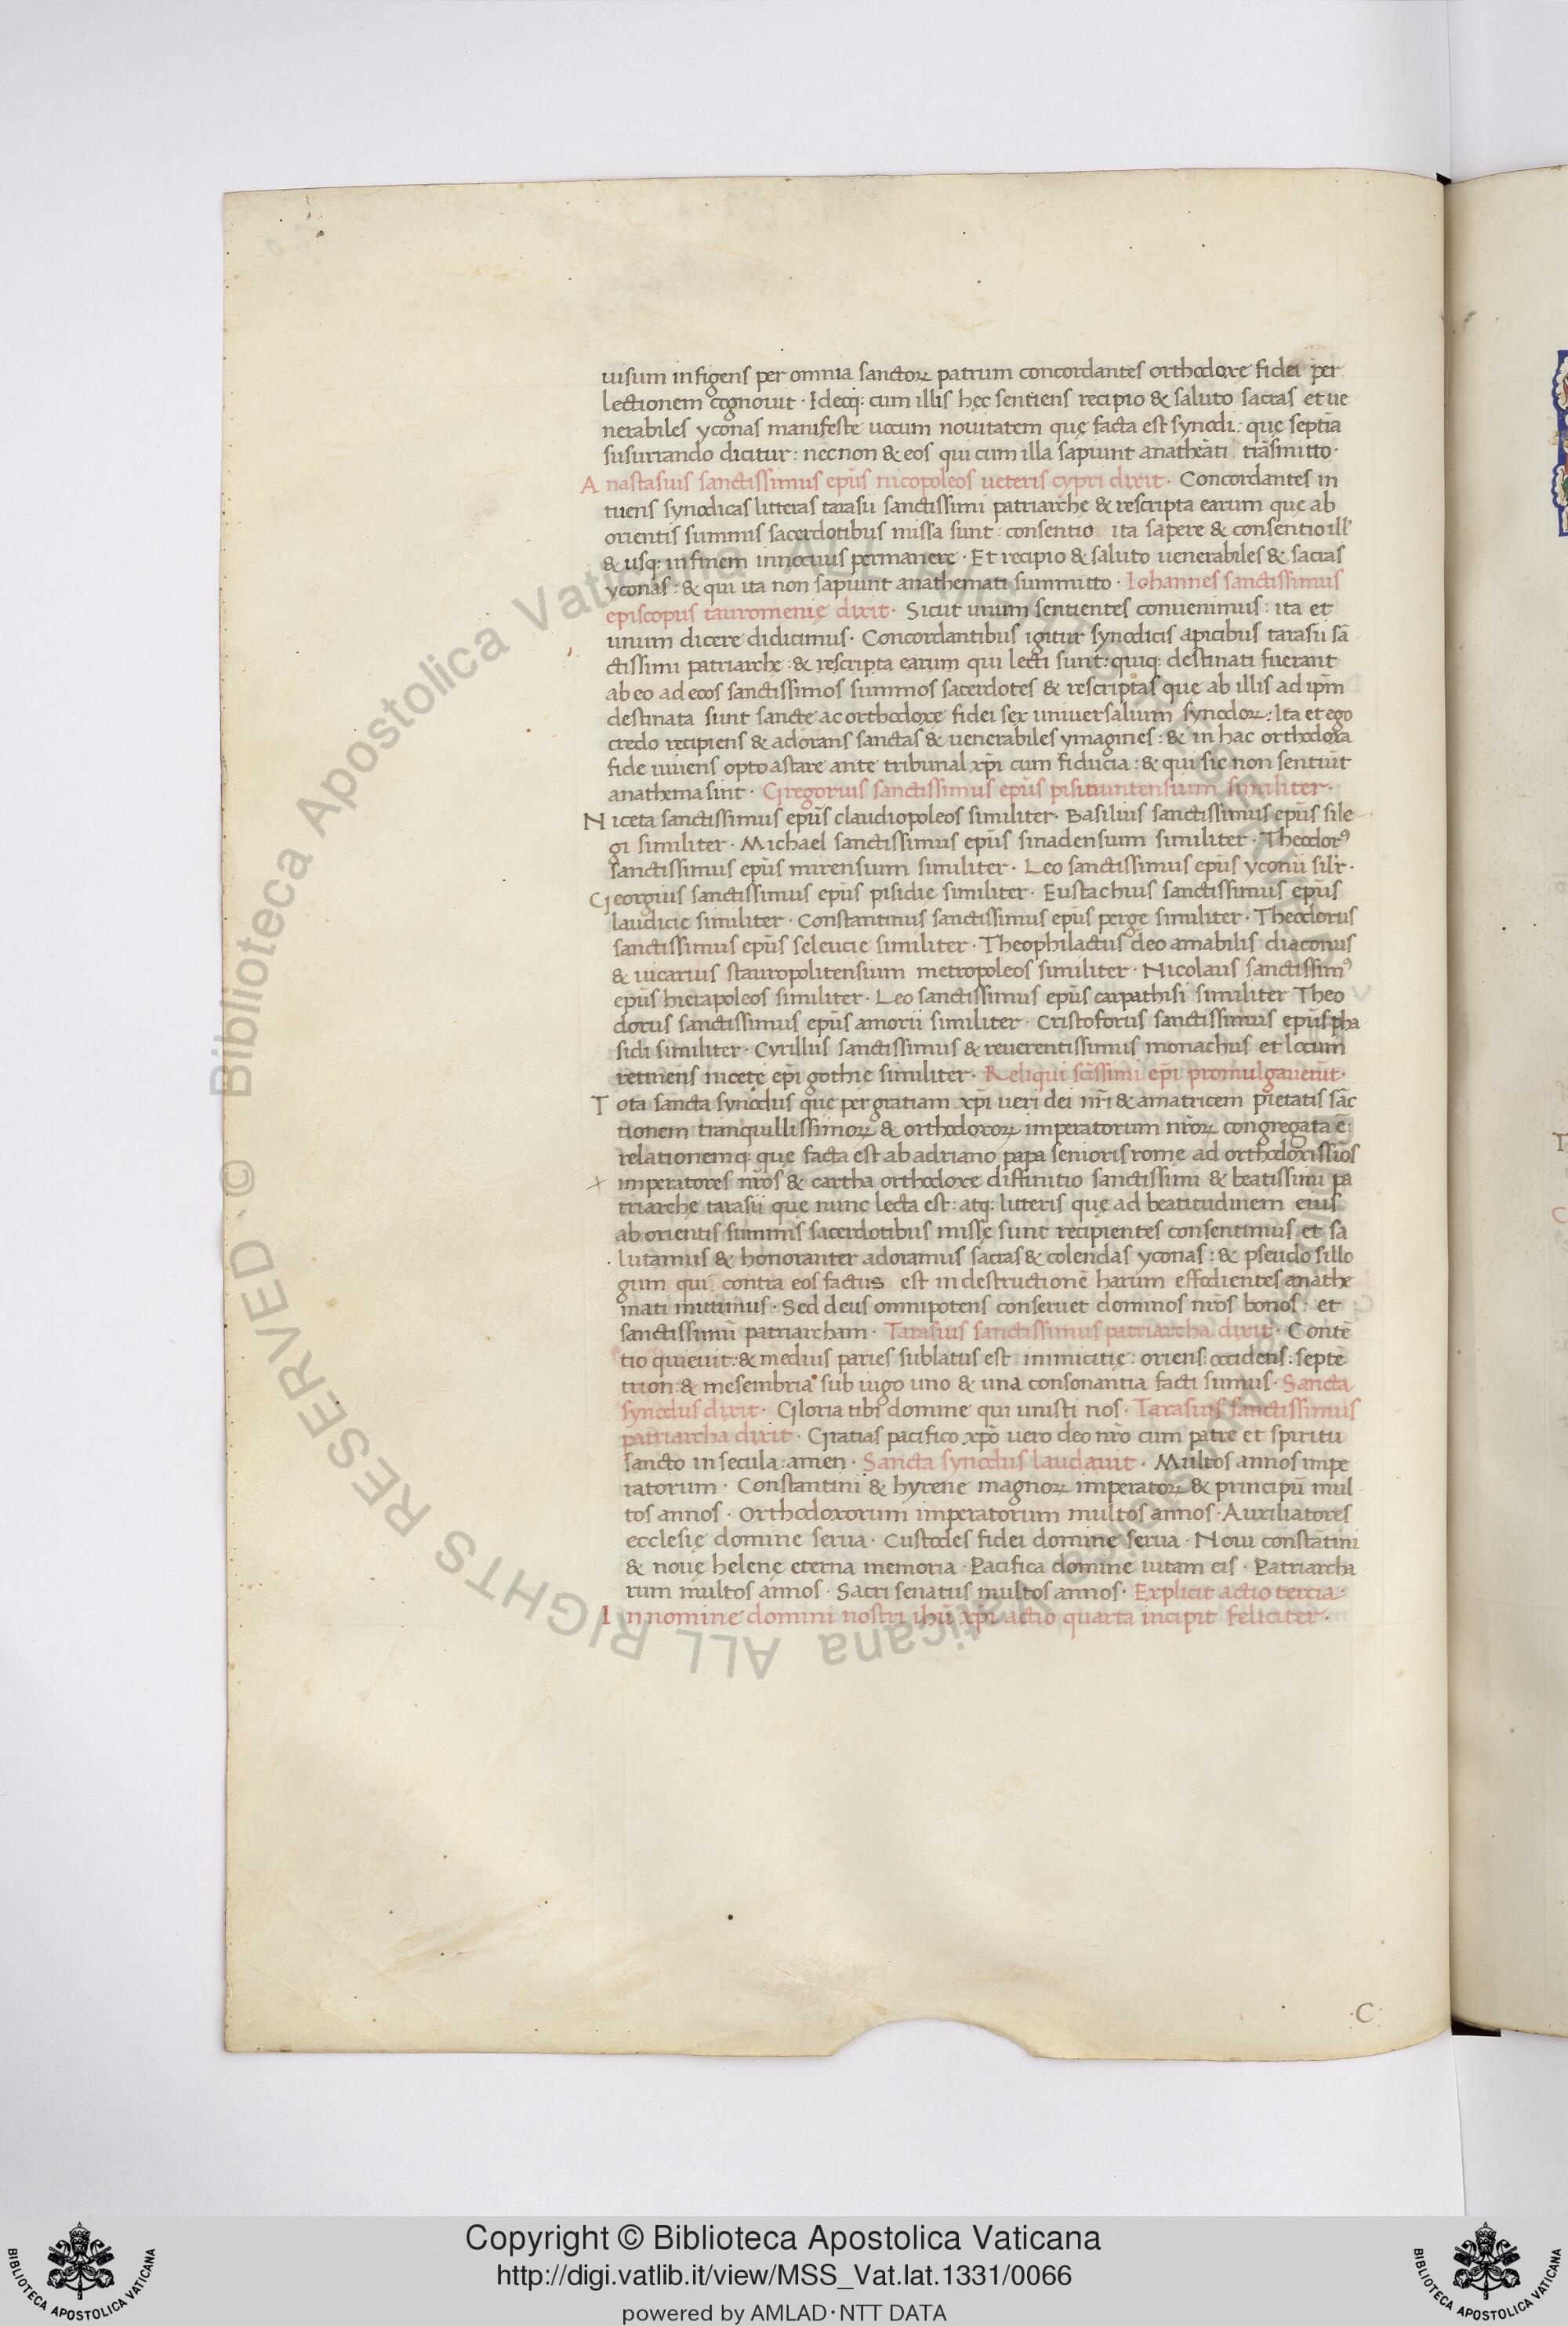 uisum infigens per omnia sanctoꝝ patrum concordantes orthodoxę fidei per
lectionem cognouit · Ideoq; cum illis hęc sentiens recipio & saluto sacras et ue
nerabiles yconas manifeste uocum nouitatem quę facta est synodi : quę septīa
susurrando dicitur : necnon & eos qui cum illa sapiunt anatheāti trāsmitto·
Anastasius sanctissimus ep̄us nicopoleos ueteris cypri dixit · Concordantes in
tuens synodicas litteras tarasii sanctissimi patriarche & rescripta earum que ab
orientis summis sacerdotibus missa sunt : consentio ita sapere & consentio ill'
& usq; in finem innocuus permanere · Et recipio & saluto uenerabiles & sacras
yconas : & qui ita non sapiunt anathemati summitto · Iohannes sanctissimus
episcopus tauromenię dixit · Sicut unum sentientes conuenimus : ita et
unum dicere didicimus · Concordantibus igitur synodicis apicibus tarasii sā
ctissimi patriarche : & rescripta earum qui lecti sunt : quiq; destinati fuerant
ab eo ad eoos sanctissimos summos sacerdotes & rescriptas quę ab illis ad ip̄m
destinata sunt sancte ac orthodoxe fidei sex uniuersalium synodoꝝ : Ita et ego
credo recipiens & adorans sanctas & uenerabiles ymagines : & in hac orthodoxa
fide uiuens opto astare ante tribunal xp̄i cum fiducia : & qui sic non sentiūt
anathema sint · Gregorius sanctissimus ep̄us pisinuntensium similiter·
Niceta sanctissimus ep̄us claudiopoleos similiter · Basilius sanctissimus ep̄us sile
gi similiter · Michael sanctissimus ep̄us sinadensium similiter · Theodorꝰ
sanctissimus ep̄us mirensium similiter · Leo sanctissimus ep̄us yconii sil'r ·
Georgius sanctissimus ep̄us pisidie similiter · Eustachius sanctissimus ep̄us
laudicie similiter · Constantinus sanctissimus ep̄us perge similiter · Theodorus
sanctissimus ep̄us seleucie similiter · Theophilactus deo amabilis diaconus
& uicarius stauropolitensium metropoleos similiter · Nicolaus sanctissimꝰ
ep̄us hierapoleos similiter · Leo sanctissimus ep̄us carpathisi similiter Theo
dorus sanctissimus ep̄us amorii similiter · Cristoforus sanctissimus ep̄us pha
sidi similiter · Cyrillus sanctissimus & reuerentissimus monachus et locum
retinens nicetę ep̄i gothię similiter · Reliqui sc̄issimi ep̄i promulgauerūt·
Tota sancta synodus que per gratiam xp̄i ueri dei nr̄i & amatricem pietatis sāc
tionem tranquillissimoꝝ & orthodoxoꝝ imperatorum nr̄oꝝ congregata ē :
relationemq; quę facta est ab adriano papa senioris romę ad orthodoxissīos
imperatores nr̄os & cartha orthodoxe diffinitio sanctissimi & beatissimi pa
triarchę tarasii quę nunc lecta est : atq; litteris quę ad beatitudinem eius
ab orientis summis sacerdotibus missę sunt recipientes consentimus et sa
lutamus & honoranter adoramus sacras & colendas yconas : & pseudo sillo
gum qui contra eos factus est in destructionē harum effodientes anathe
mati mittimus · Sed deus omnipotens conseruet dominos nr̄os bonos : et
sanctissimū patriarcham · Tarasius sanctissimus patriarcha dixit · Contē
tio quieuit : & medius paries sublatus est inimicitię : oriens : occidens : septē
trion : & mesembria sub iugo uno & una consonantia facti sumus · Sancta
synodus dixit · Gloria tibi domine qui unisti nos · Tarasius sanctissimus
patriarcha dixit · Gratias pacifico xp̄o uero deo nr̄o cum patre et spiritu
sancto in secula : amen · Sancta synodus laudauit · Multos annos impe
ratorum · Constantini & hyrene magnoꝝ imperatoꝝ & principū mul
tos annos · Orthodoxorum imperatorum multos annos · Auxiliatores
ecclesię domine serua · Custodes fidei domine serua · Noui constātini
& nouę helenę eterna memoria · Pacifica domine uitam eis · Patriarcha
rum multos annos · Sacri senatus multos annos · Explicit actio tercia·
In nomine domini nostri ihū xp̄i actio quarta incipit feliciter ·
·C·
© Biblioteca Apostolica Vaticana ALL RIGHTS RESERVED
Copyright © Biblioteca Apostolica Vaticana
http://digi.vatlib.it/view/MSS_Vat.lat.1331/0066
powered by AMLAD·NTT DATA
BIBLIOTECA APOSTOLICA VATICANA
BIBLIOTECA APOSTOLICA VATICANA